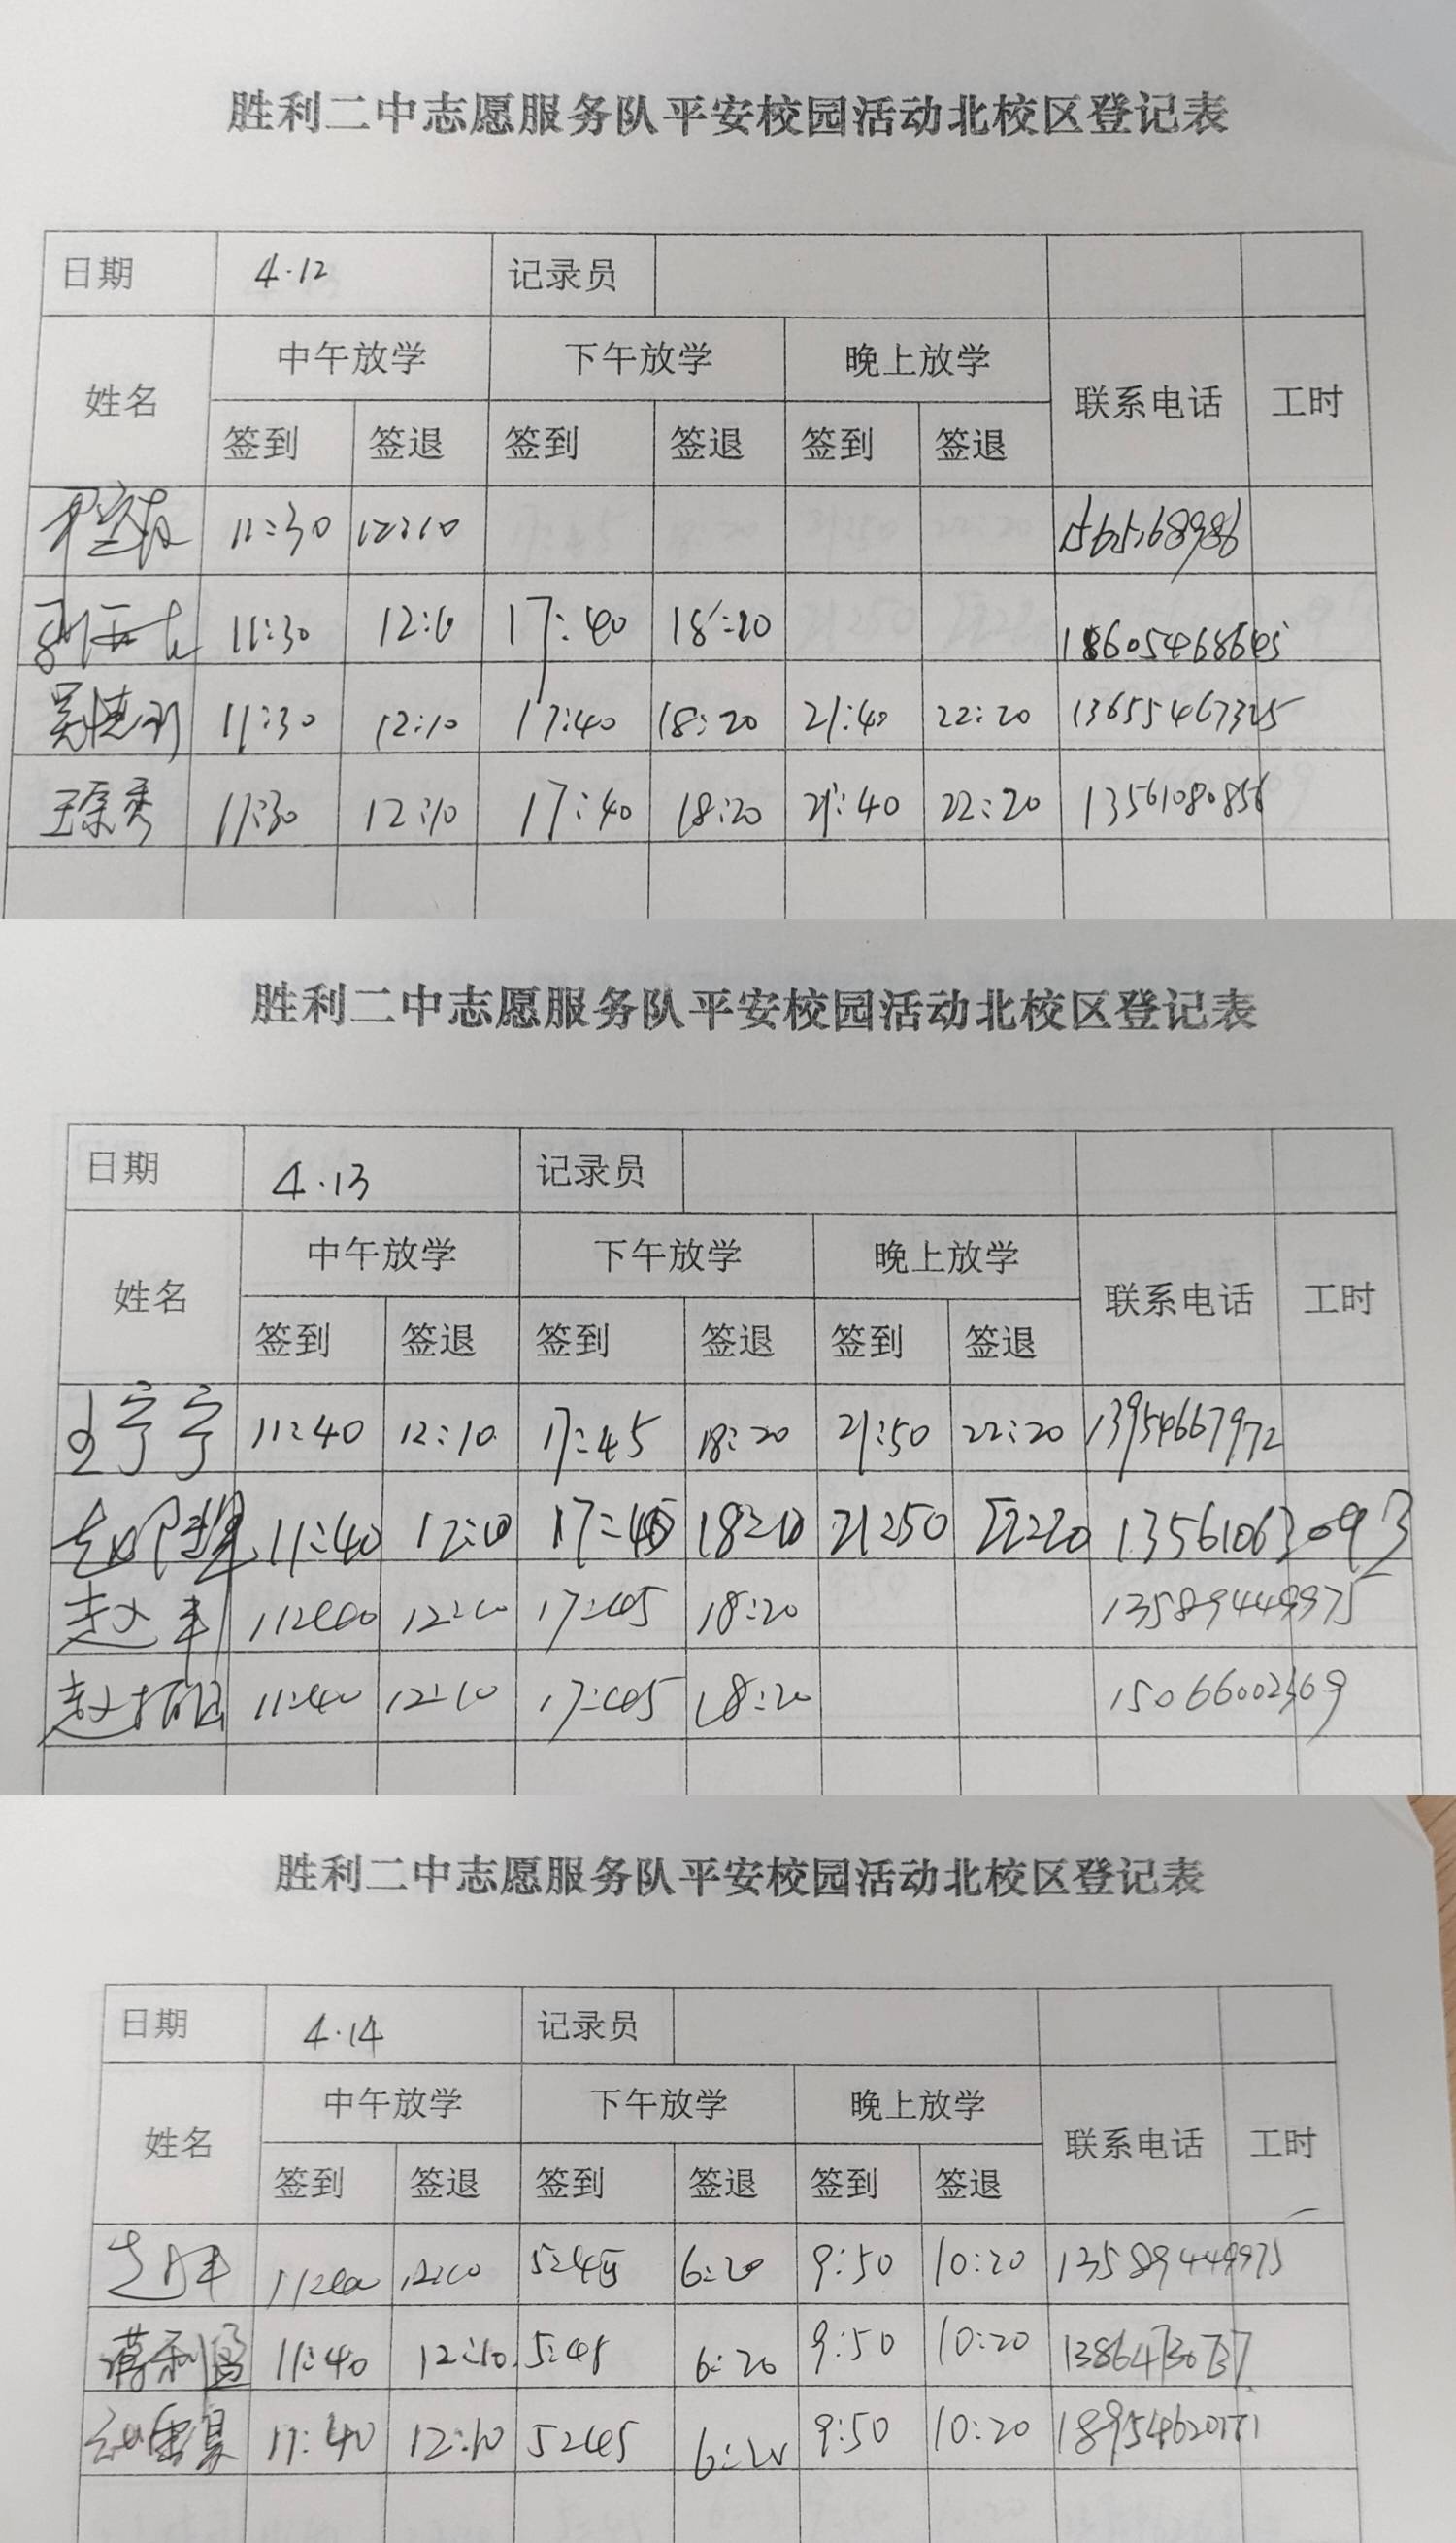 胜利二中志愿服务队平安校园活动北校区登记表
日期 4.12 记录员
姓名 中午放学 下午放学 晚上放学 联系电话 工时
签到 签退 签到 签退 签到 签退
11:30 12:10
11:30 12:10 17:40 18:20 18605468645
11:30 12:10 17:40 18:20 21:40 22:20 13655467325
11:30 12:10 17:40 18:20 21:40 22:20 13561080856
胜利二中志愿服务队平安校园活动北校区登记表
日期 4.13 记录员
姓名 中午放学 下午放学 晚上放学 联系电话 工时
签到 签退 签到 签退 签到 签退
王宁宁 11:40 12:10 17:45 18:20 21:50 22:20 13954667972
11:40 12:10 17:45 18:20 21:50 22:20 13561063093
赵丰 11:40 12:10 17:45 18:20 13589449975
11:40 12:10 17:45 18:20 15066002369
胜利二中志愿服务队平安校园活动北校区登记表
日期 4.14 记录员
姓名 中午放学 下午放学 晚上放学 联系电话 工时
签到 签退 签到 签退 签到 签退
11:40 12:10 5:45 6:20 9:50 10:20 13589449975
11:40 12:10 5:45 6:20 9:50 10:20
11:40 12:10 5:45 6:20 9:50 10:20